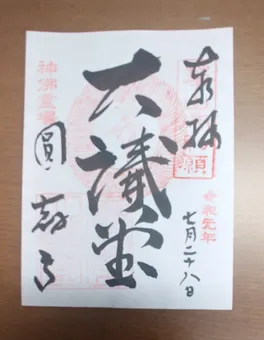 奉拝
願
令和元年
七月二十八日
大講堂
神佛霊場
圓教寺